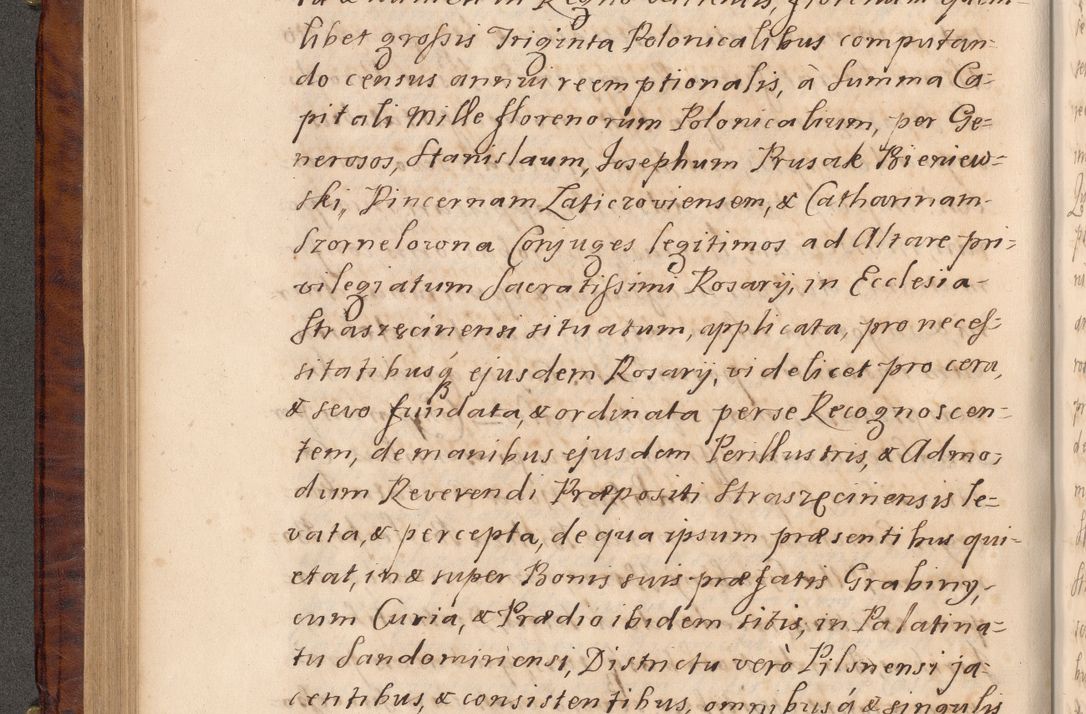 libet grossis Triginta Polonicalibus computan=
do census annui reemptionalis, à Summa Ca=
pitali Mille florenorum Polonicalium, per Ge=
nerosos, Stanislaum, Josephum Prusak Bieniew=
ski, Pincernam Laticzoviensem, & Catharinam
Szornelowna Conjuges legitimos ad Altare pri=
vilegiatum Sacratissimi Rosarij, in Ecclesia
Straszęcinensi situatum, applicata, pro neces=
sitatibusq ejusdem Rosarij, videlicet pro cera,
& sevo fundata, & ordinata per se Recognoscen=
tem, de manibus ejusdem Perillustris, & Admo=
dum Reverendi Præpositi Straszęcinensis le=
vata, & percepta, de qua ipsum præsentibus qui=
etat, in & super Bonis suis præfatis Grabiny,
cum Curia, & Prædio ibidem sitis, in Palatina=
tu Sandomiriensi, Districtu verò Pilsnensi ja=
centibus, & consistentibus, omnibusq & singulis